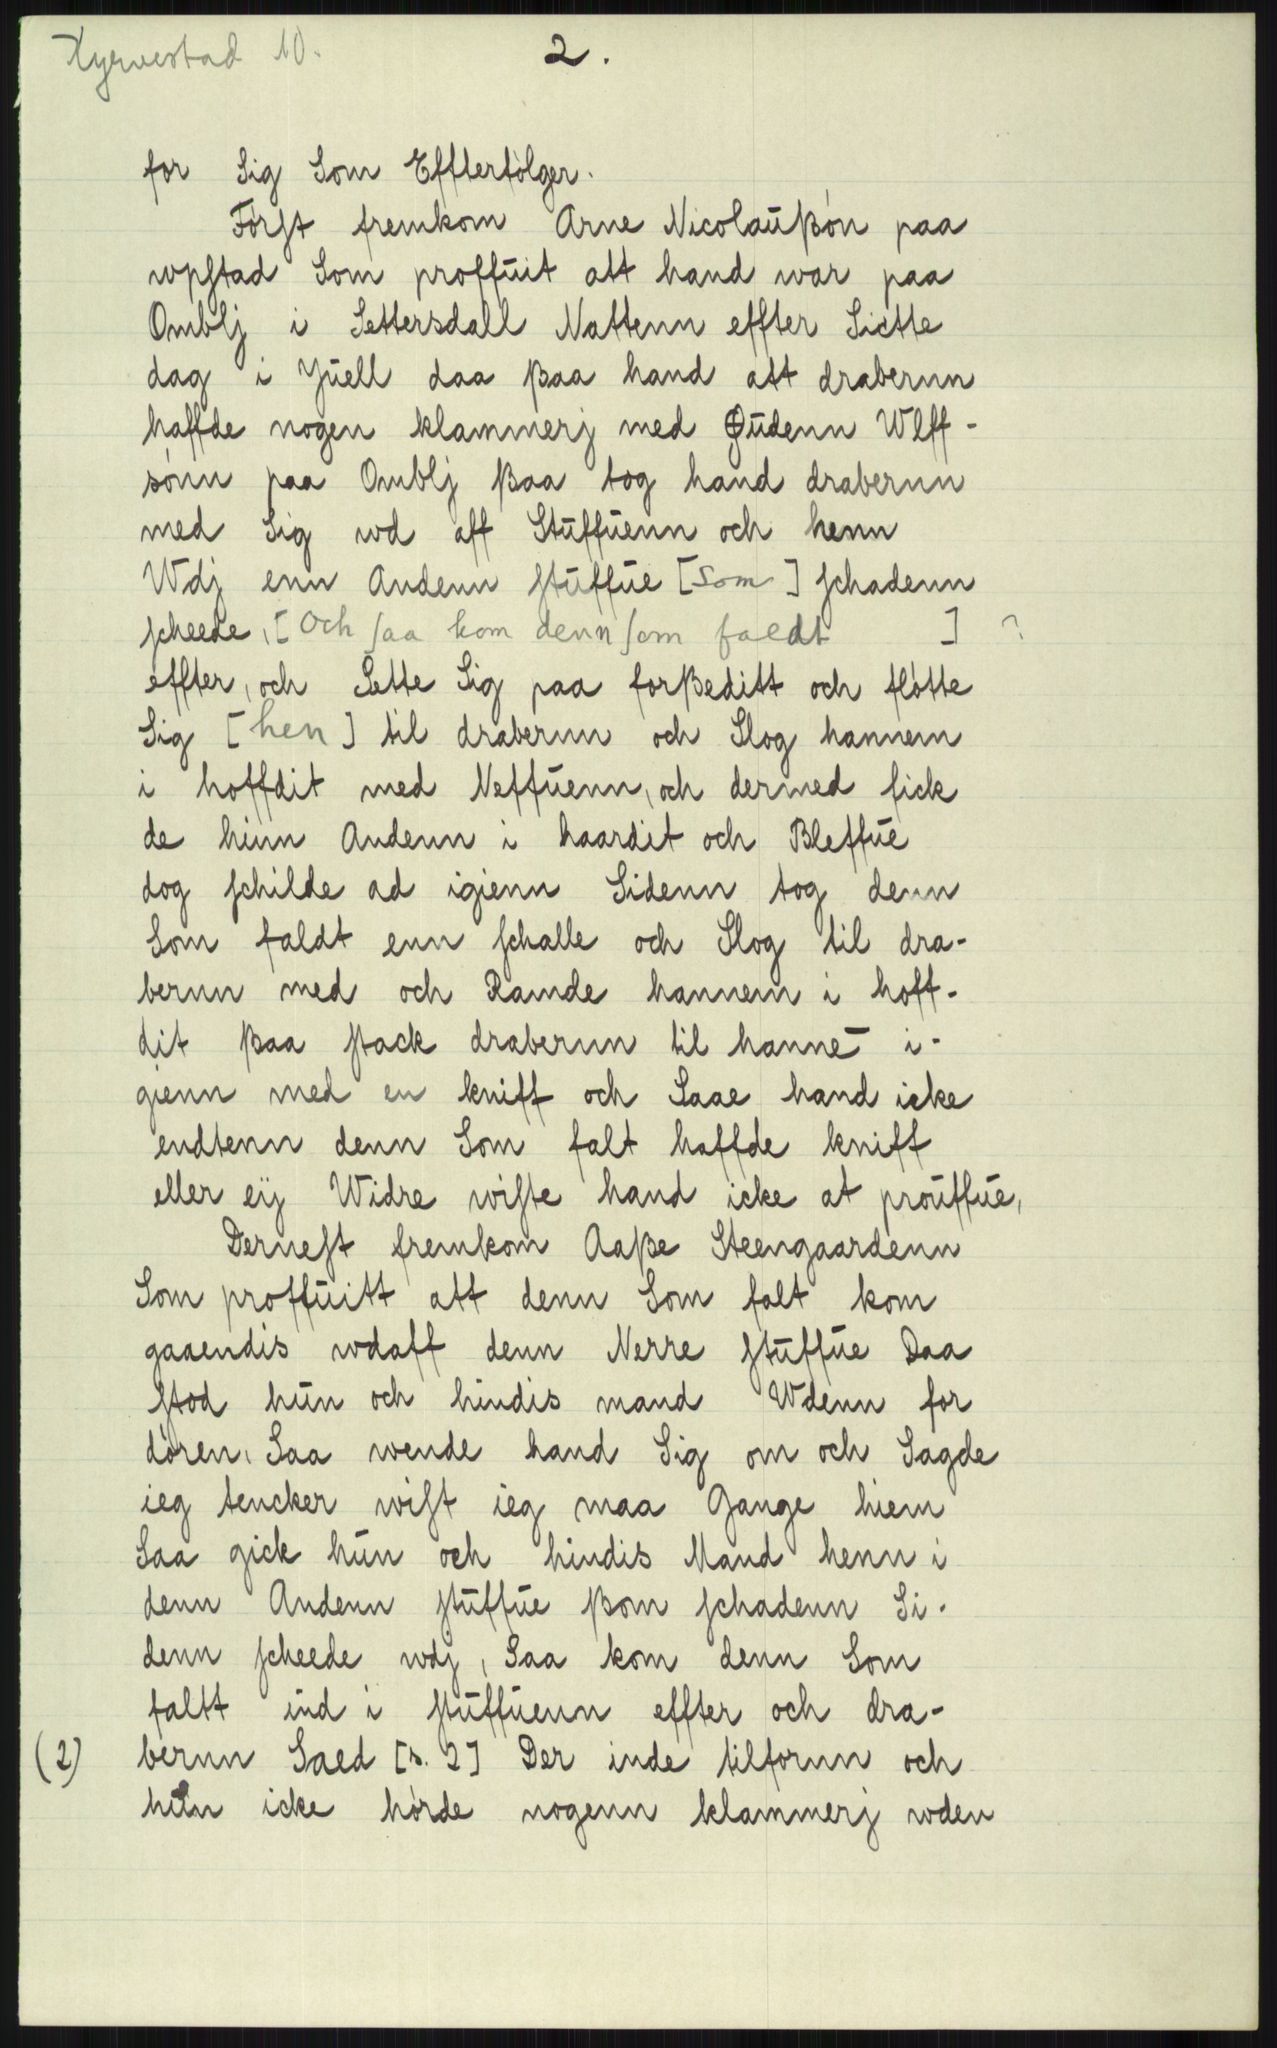 Kyrvestad 10.
2.
for Sig Som Effterfólger.
Fórst fremkom Arne Nicolaußón paa
wpstad Som proffuit att hand war paa
Omblj i Settersdall Nattenn effter Siette
dag i Juell daa ßaa hand att drabernn
haffde nogen klammerj med Gudenn Wlff-
sónn paa Omblj ßaa tog hand drabernn
med Sig wd aff Stuffuenn och henn
Wdj enn Andenn stuffue [Som] schadenn
scheede, [och saa kom denn som faldt ] ?
effter, och Sette Sig paa forßeditt och flótte
Sig [hen] til drabernn och Slog hannem
i hoffdit med Neffuenn, och dermed fick
de hinn Andenn i haardit och Bleffue
dog schilde ad igienn Sidenn tog denn
Som faldt enn schalle och Slog til dra-
bernn med och Ramde hannem i hoff-
dit ßaa stack draberun til hanne i-
gienn med en kniff och Saae hand icke
endtenn denn Som falt haffde kniff
eller eij Widre wiste hand icke at prouffue,
Dernest fremkom Aaße Steengaardenn
Som proffuitt att denn Som falt kom
gaaendis wdaff denn Nerre stuffue Daa
stod hun och hindis mand Wdenn for
dóren, Saa wende hand Sig om och Sagde
ieg tencker wist ieg maa Gange hiem
Saa gick hun och hindis Mand henn i
denn Andenn stuffue ßom schadenn Si-
denn scheede wdj, Saa kom denn Som
faltt ind i stuffuenn effter och dra-
(2) bernn Saed [s. 2] Der inde tilfornn och
hun icke hórde nogenn klammerj wden